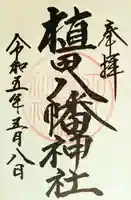 奉拝
植田八幡神社
令和五年五月八日